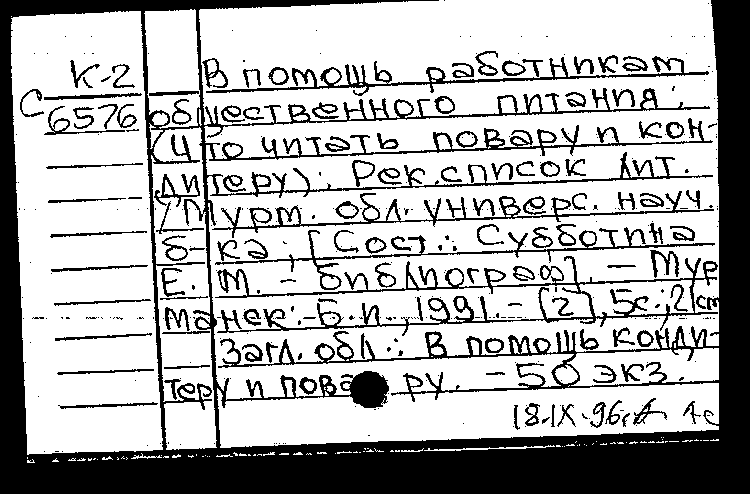 К-2 В помощь работникам
С 6576 общественного питания:
(Что читать повару и кон-
дитеру): Рек. список лит.
/ Мурм. обл. универс. науч.
б-ка; [Сост.: Субботина
Е. М. - библиограф]. - Мур
манск: Б. и., 1991. - [2], 5с.; 21см
Загл. обл.: В помощь конди-
теру и повару. - 50 экз.
18.IX.96г.